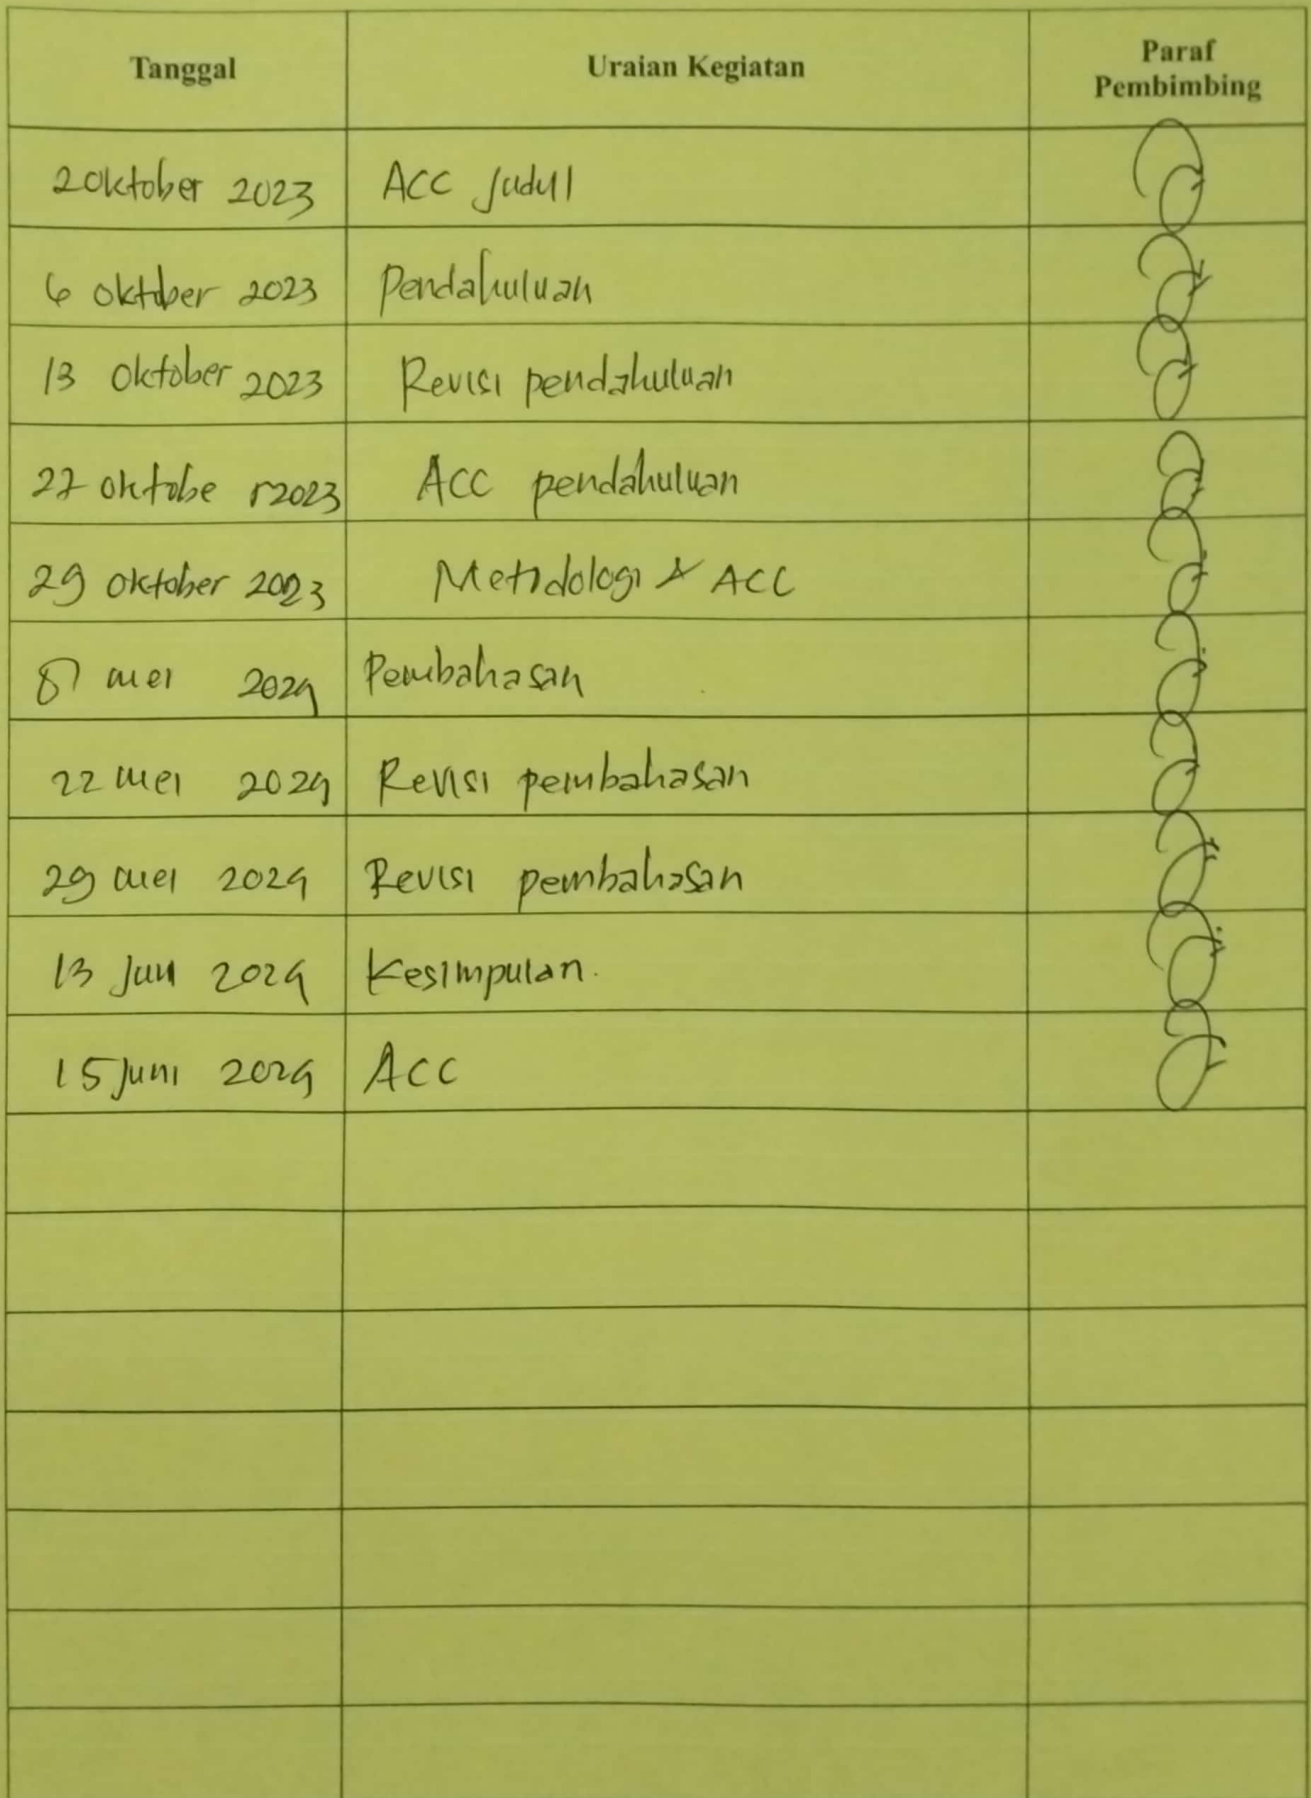 Tanggal Uraian Kegiatan Paraf Pembimbing
2 Oktober 2023 ACC Judul
6 Oktober 2023 Pendahuluan
13 Oktober 2023 Revisi pendahuluan
Oktober 2023 ACC pendahuluan
29 Oktober 2023 Metodologi & ACC
Mei 2024 Pembahasan
22 Mei 2024 Revisi pembahasan
29 Mei 2024 Revisi pembahasan
13 Juni 2024 Kesimpulan.
15 Juni 2024 ACC